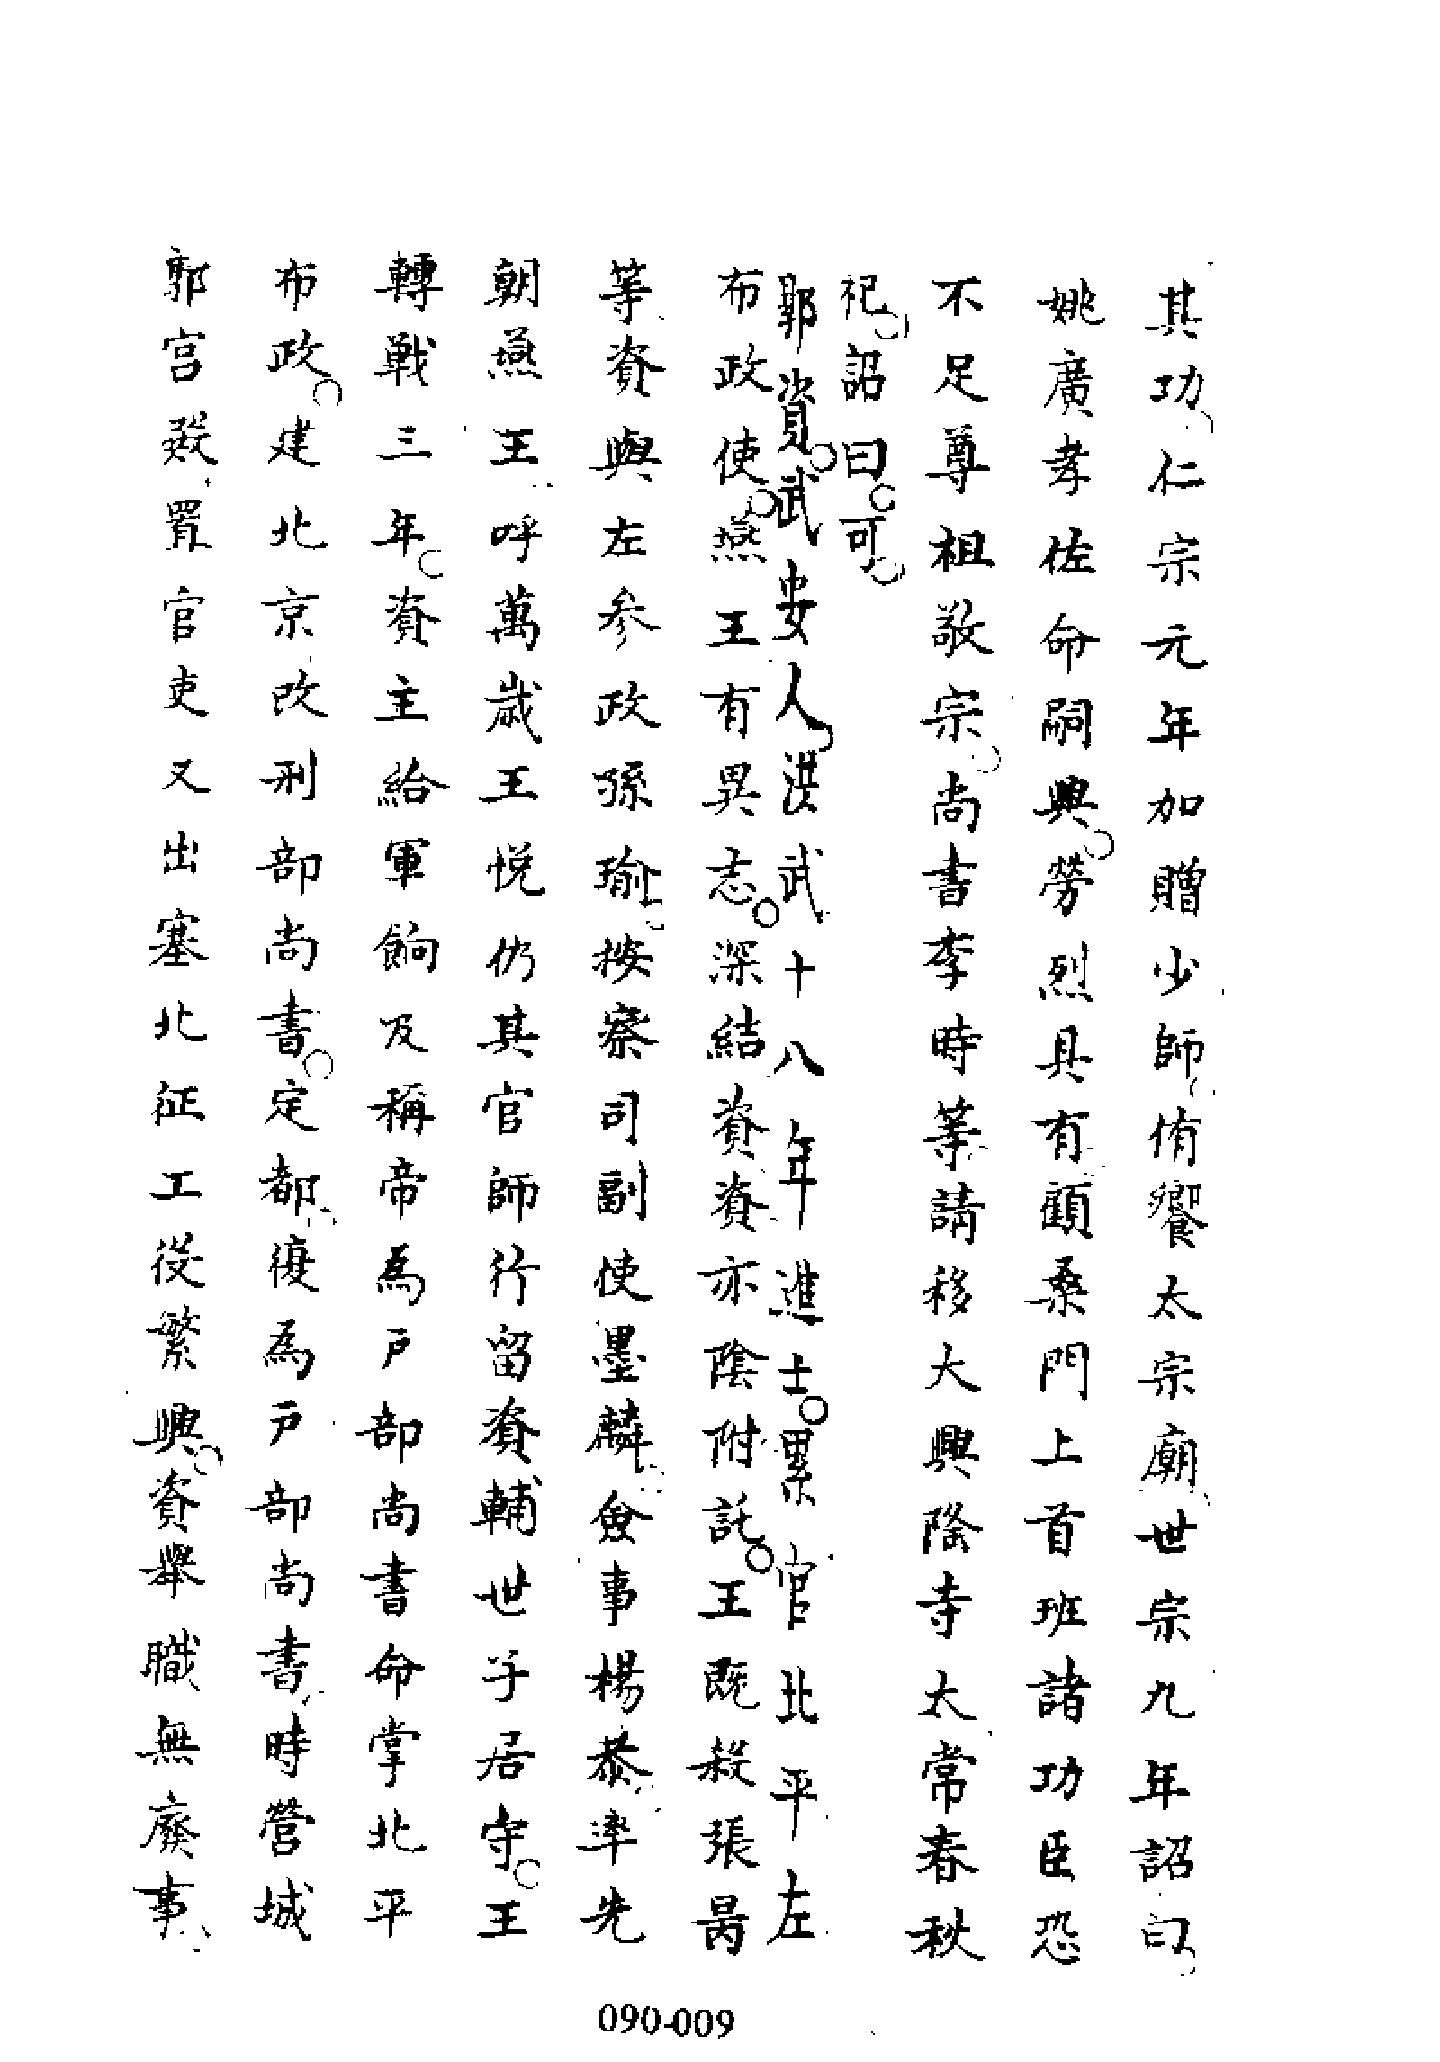 其功仁宗元年加贈少師侑饗太宗廟世宗九年詔曰
姚廣孝佐命嗣興勞烈具有顧桑門上首班諸功臣恐
不足尊祖敬宗尚書李時等請移大興隆寺太常春秋
祀詔曰可
郭資武安人洪武十八年進士累官北平左
布政使燕王有異志深結資資亦陰附託王既殺張昺
等資與左參政孫瑜按察司副使墨麟僉事楊㤗率先
朝燕王呼萬歲王悅仍其官師行留資輔世子居守王
轉戰三年資主給軍餉及稱帝為戶部尚書命掌北平
布政建北京改刑部尚書定都復為戶部尚書時營城
郭宮殿置官吏又出塞北征工役繁興資舉職無廢事
090-009